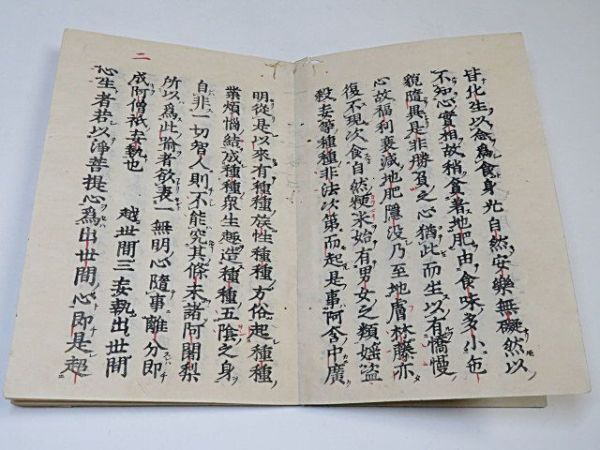 甘化生以念為食身光自然安樂無礙然以
不知心實相故稍貪著地肥由食味多小色
貌隨異是非勝負之心猶此而生以有憍慢
心故福利衰減地肥隱没乃至地膚林藤亦
復不現次食自然粳米始有男女之類婬盜
殺妄等種種非法次第而起是事阿含中廣
明從是以來有種種族性種種方俗起種種
業煩惱結成種種衆生趣造種種五陰之身
自非一切智人則不能究其條末諸阿闍梨
所以爲此喻者欲表一無明心隨事離分即
成阿僧祇妄執也 越世間三妄執出世間
心生者若以淨菩提心爲出世間心即是超
二